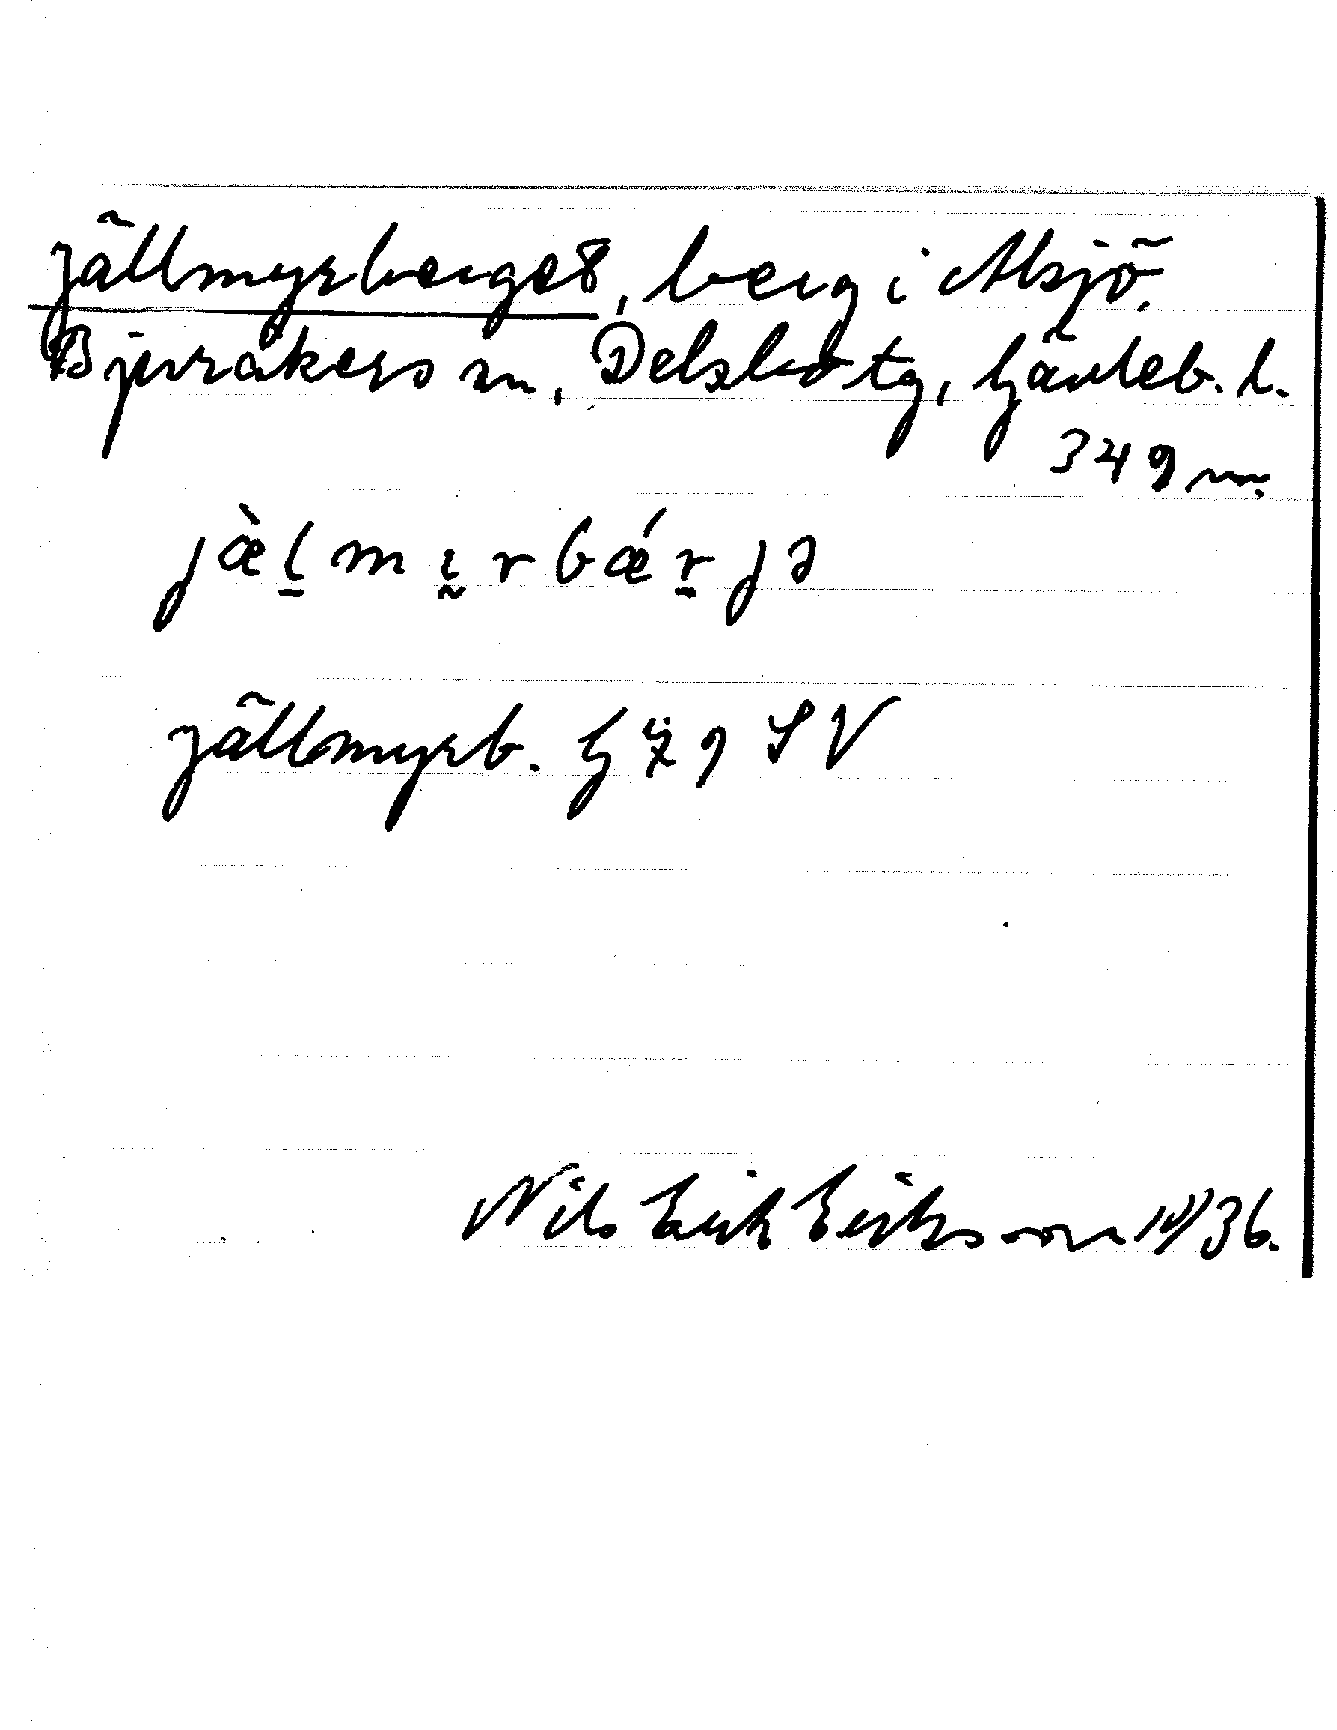 Jällmyrberget, berg i Alsjö.
Bjuråkers sn, Delsbo tg, Gävleb. l.
349 m.
jæ̀l̠mı̰rbǽr̠jə
Jällmyrb. G Ä 9 SV
Nils Erik Eriksson 10/36.